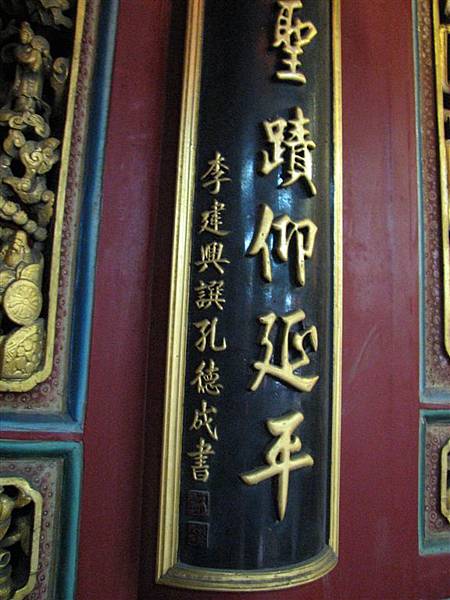 聖蹟仰延平
李建興譔孔德成書